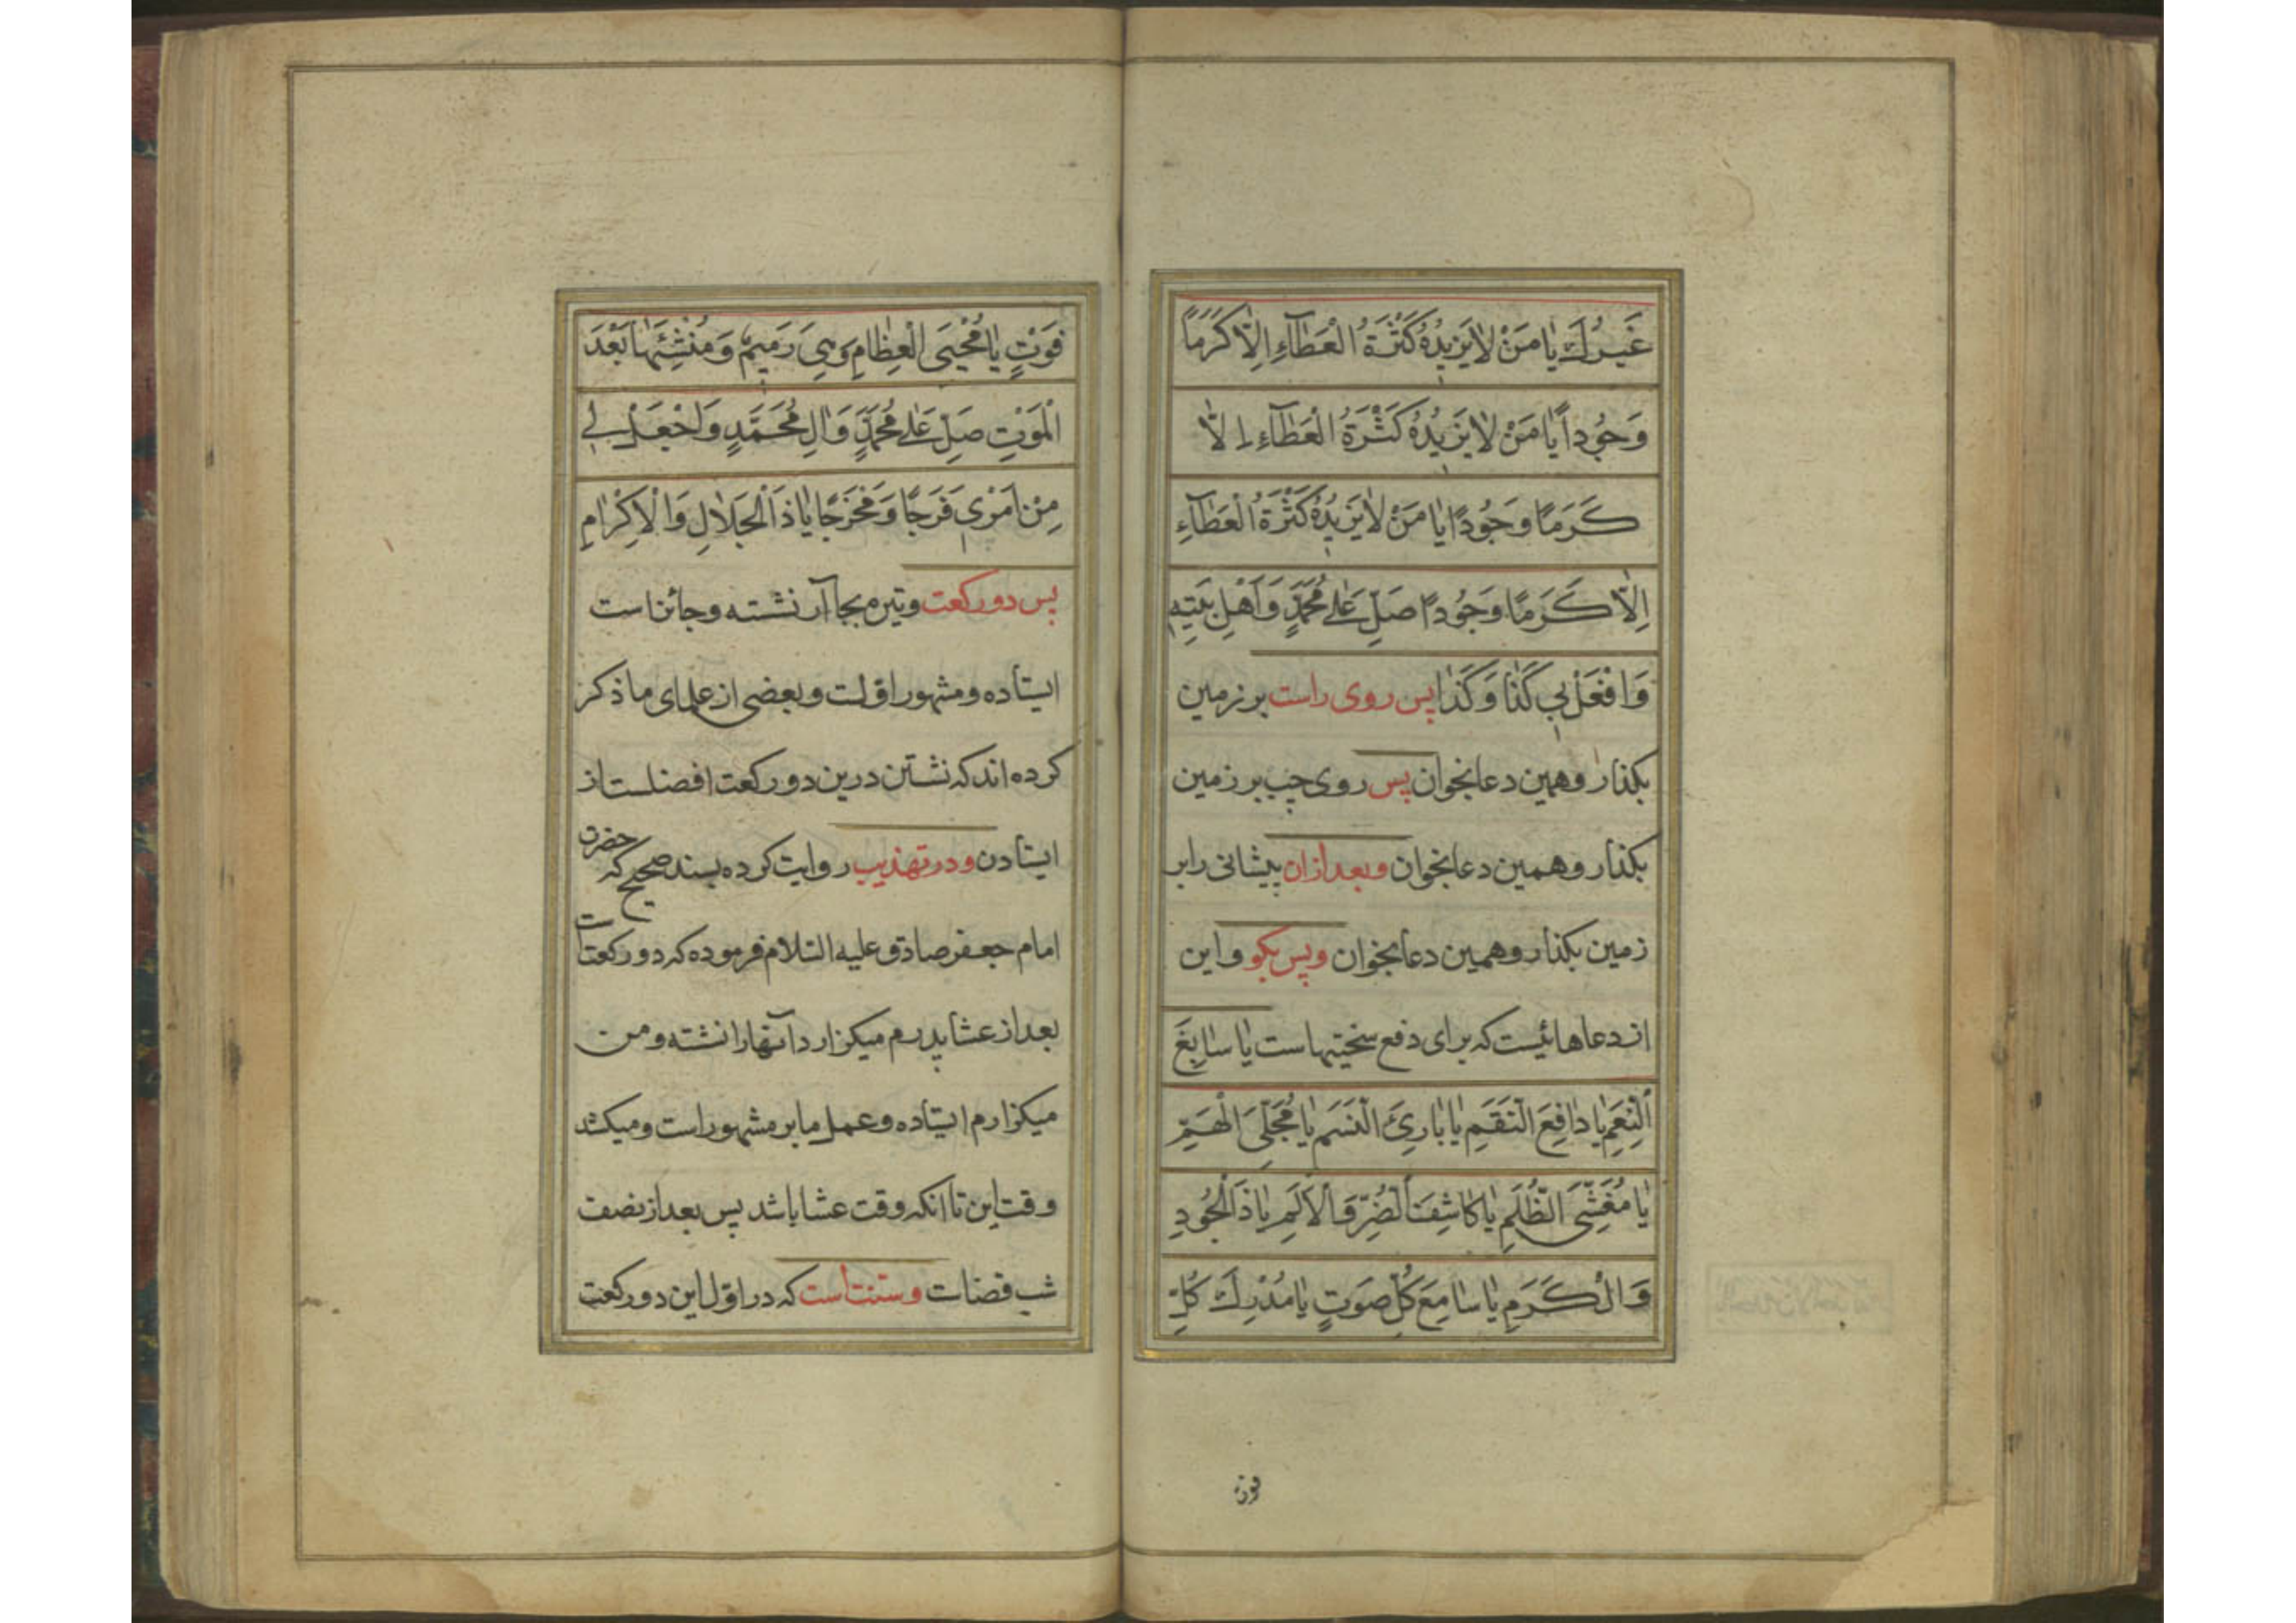 غَيْرُكَ يٰا مَنْ لاٰ يَزيدُهُ كَثْرَةُ الْعَطآءِ اِلاّٰ كَرَمًا
وَجُوداً يٰا مَنْ لاٰ يَزيدُهُ كَثْرَةُ الْعَطآءِ اِلاّٰ
كَرَمًا وَجُودًا يٰا مَنْ لاٰ يَزيدُهُ كَثْرَةُ الْعَطآءِ
اِلاّٰ كَرَمًا وَجُودًا صَلِّ عَلٰى مُحَمَّدٍ وَاَهْلِ بَيْتِهِ
وَافْعَلْ بي كَذٰا وَكَذٰا پس روی راست بر زمین
بگذار و همین دعا بخوان پس روی چپ بر زمین
بگذار و همین دعا بخوان و بعد ازان پیشانی را بر
زمین بگذار و همین دعا بخوان و پس بگو و این
از دعاهائیست که برای دفع سختیهاست یٰا سٰابِغَ
اَلنِّعَمِ يٰا دٰافِعَ النِّقَمِ يٰا بٰارِئَ النَّسَمِ يٰا مُجَلِّىَ الْهَمِّ
يٰا مُغَشِّىَ الظُّلَمِ يٰا كٰاشِفَ الضُّرِّ وَالْاَلَمِ يٰا ذَا الْجُودِ
وَالْكَرَمِ يٰا سٰامِعَ كُلِّ صَوْتٍ يٰا مُدْرِكَ كُلِّ
فوت
فَوْتٍ يٰا مُحْيِىَ الْعِظٰامِ وَهِىَ رَميمٌ وَمُنْشِئَهٰا بَعْدَ
الْمَوْتِ صَلِّ عَلٰى مُحَمَّدٍ وَآلِ مُحَمَّدٍ وَاجْعَلْ لي
مِنْ اَمْرى فَرَجًا وَمَخْرَجًا يٰا ذَا الْجَلاٰلِ وَالْاِكْرٰامِ
پس دو رکعت وتیره بجا آر نشسته و جائز است
ایستاده و مشهور اوّلست و بعضی از علمای ما ذکر
کرده‌اند که نشستن درین دو رکعت افضلست از
ایستادن و در تهذیب روایت کرده بسند صحیح که حضرت
امام جعفر صادق علیه السّلام فرموده که دو رکعت است
بعد از عشا پدرم میگزارد آنها را نشسته و من
میگزارم ایستاده و عمل ما بر مشهور است و میکشد
وقت این تا آنکه وقت عشا باشد پس بعد از نصف
شب قضاست و سنّت است که در اوّل این دو رکعت